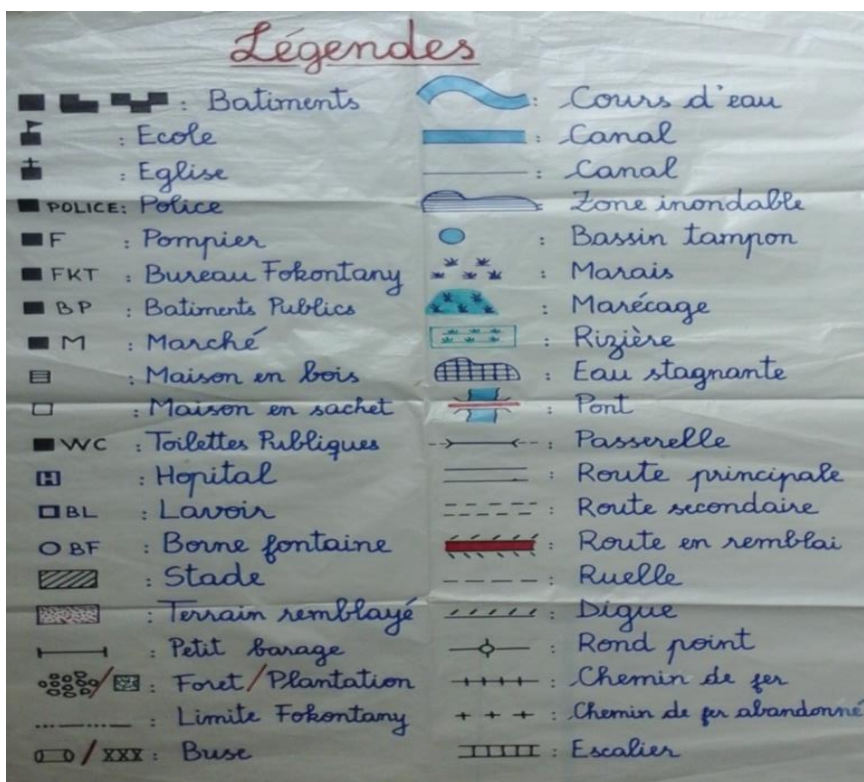 Légendes
: Batiments
: Ecole
: Eglise
POLICE: Police
F : Pompier
FKT : Bureau Fokontany
BP : Batiments Publics
M : Marché
: Maison en bois
: Maison en sachet
WC : Toilettes Publiques
H : Hopital
BL : Lavoir
BF : Borne fontaine
: Stade
: Terrain remblayé
: Petit barage
/ : Foret/Plantation
: Limite Fokontany
/ XXX : Buse
: Cours d'eau
: Canal
: Canal
: Zone inondable
: Bassin tampon
: Marais
: Marécage
: Rizière
: Eau stagnante
: Pont
: Passerelle
: Route principale
: Route secondaire
: Route en remblai
: Ruelle
: Digue
: Rond point
: Chemin de fer
: Chemin de fer abandonné
: Escalier